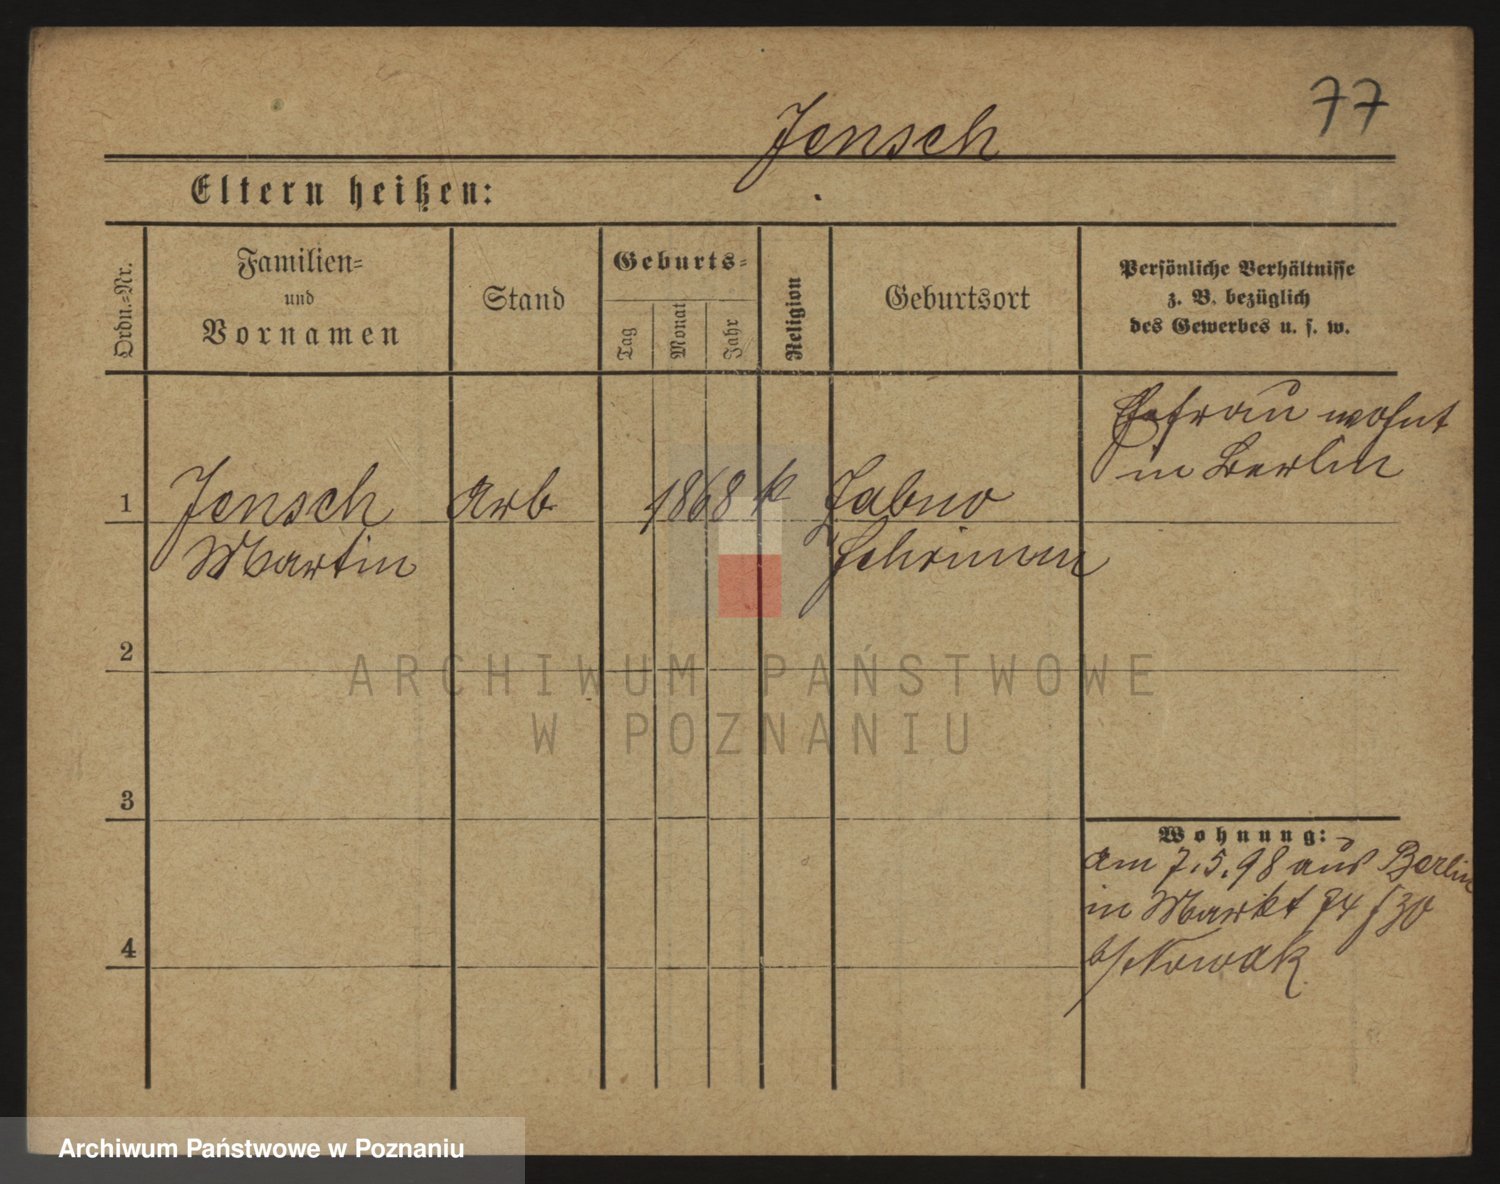 77
Jensch
Eltern heißen:
Ordn.=Nr.
Familien=
und
Vornamen
Stand
Geburts=
Tag
Monat
Jahr
Religion
Geburtsort
Persönliche Verhältnisse
z. B. bezüglich
des Gewerbes u. s. w.
Ehefrau wohnt
in Berlin
1
Jensch
Martin
Arb
1868
k
Zabno
Schrimm
2
ARCHIWUM PAŃSTWOWE
W POZNANIU
3
Wohnung:
am 7.5.98 aus Berlin
in Markt 74
b/ Nowak
4
Archiwum Państwowe w Poznaniu